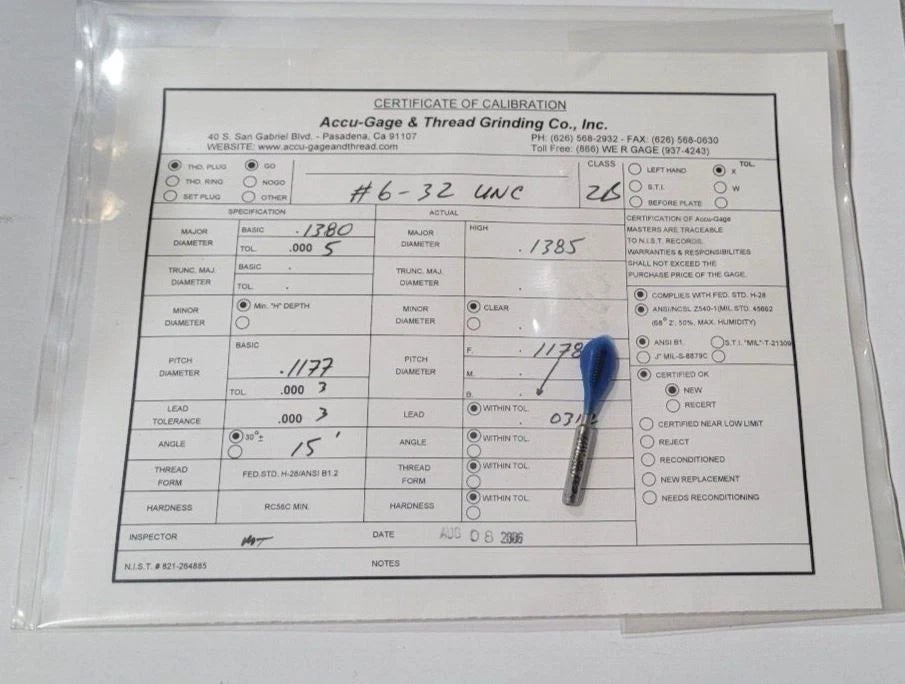 CERTIFICATE OF CALIBRATION
Accu-Gage & Thread Grinding Co., Inc.
40 S. San Gabriel Blvd. - Pasadena, Ca 91107 PH: (626) 568-2932 - FAX: (626) 568-0630
WEBSITE: www.accu-gageandthread.com Toll Free: (866) WE R GAGE (937-4243)
THD. PLUG GO CLASS LEFT HAND TOL. X
THD. RING NOGO #6-32 UNC 2B S.T.I. W
SET PLUG OTHER BEFORE PLATE
SPECIFICATION ACTUAL
MAJOR DIAMETER BASIC .1380 MAJOR DIAMETER HIGH .1385
TOL. .000 5
CERTIFICATION OF Accu-Gage
MASTERS ARE TRACEABLE
TO N.I.S.T. RECORDS.
WARRANTIES & RESPONSIBILITIES
SHALL NOT EXCEED THE
PURCHASE PRICE OF THE GAGE.
TRUNC. MAJ. DIAMETER BASIC . TRUNC. MAJ. DIAMETER .
TOL. .
MINOR DIAMETER Min. "H" DEPTH MINOR DIAMETER CLEAR
COMPLIES WITH FED. STD. H-28
ANSI/NCSL Z540-1(MIL.STD. 45662
(68° 2', 50%, MAX. HUMIDITY)
PITCH DIAMETER BASIC .1177 PITCH DIAMETER F. .1178
M. .
TOL. .000 3 B. .
ANSI B1. S.T.I. "MIL"-T-21309
"J" MIL-S-8879C
CERTIFIED OK
NEW
RECERT
LEAD TOLERANCE .000 3 LEAD WITHIN TOL.
CERTIFIED NEAR LOW LIMIT
ANGLE 30°± 15' ANGLE WITHIN TOL.
REJECT
RECONDITIONED
THREAD FORM FED.STD. H-28/ANSI B1.2 THREAD FORM WITHIN TOL.
NEW REPLACEMENT
HARDNESS RC56C MIN. HARDNESS WITHIN TOL.
NEEDS RECONDITIONING
INSPECTOR DATE AUG 08 2006
N.I.S.T. # 821-264885 NOTES